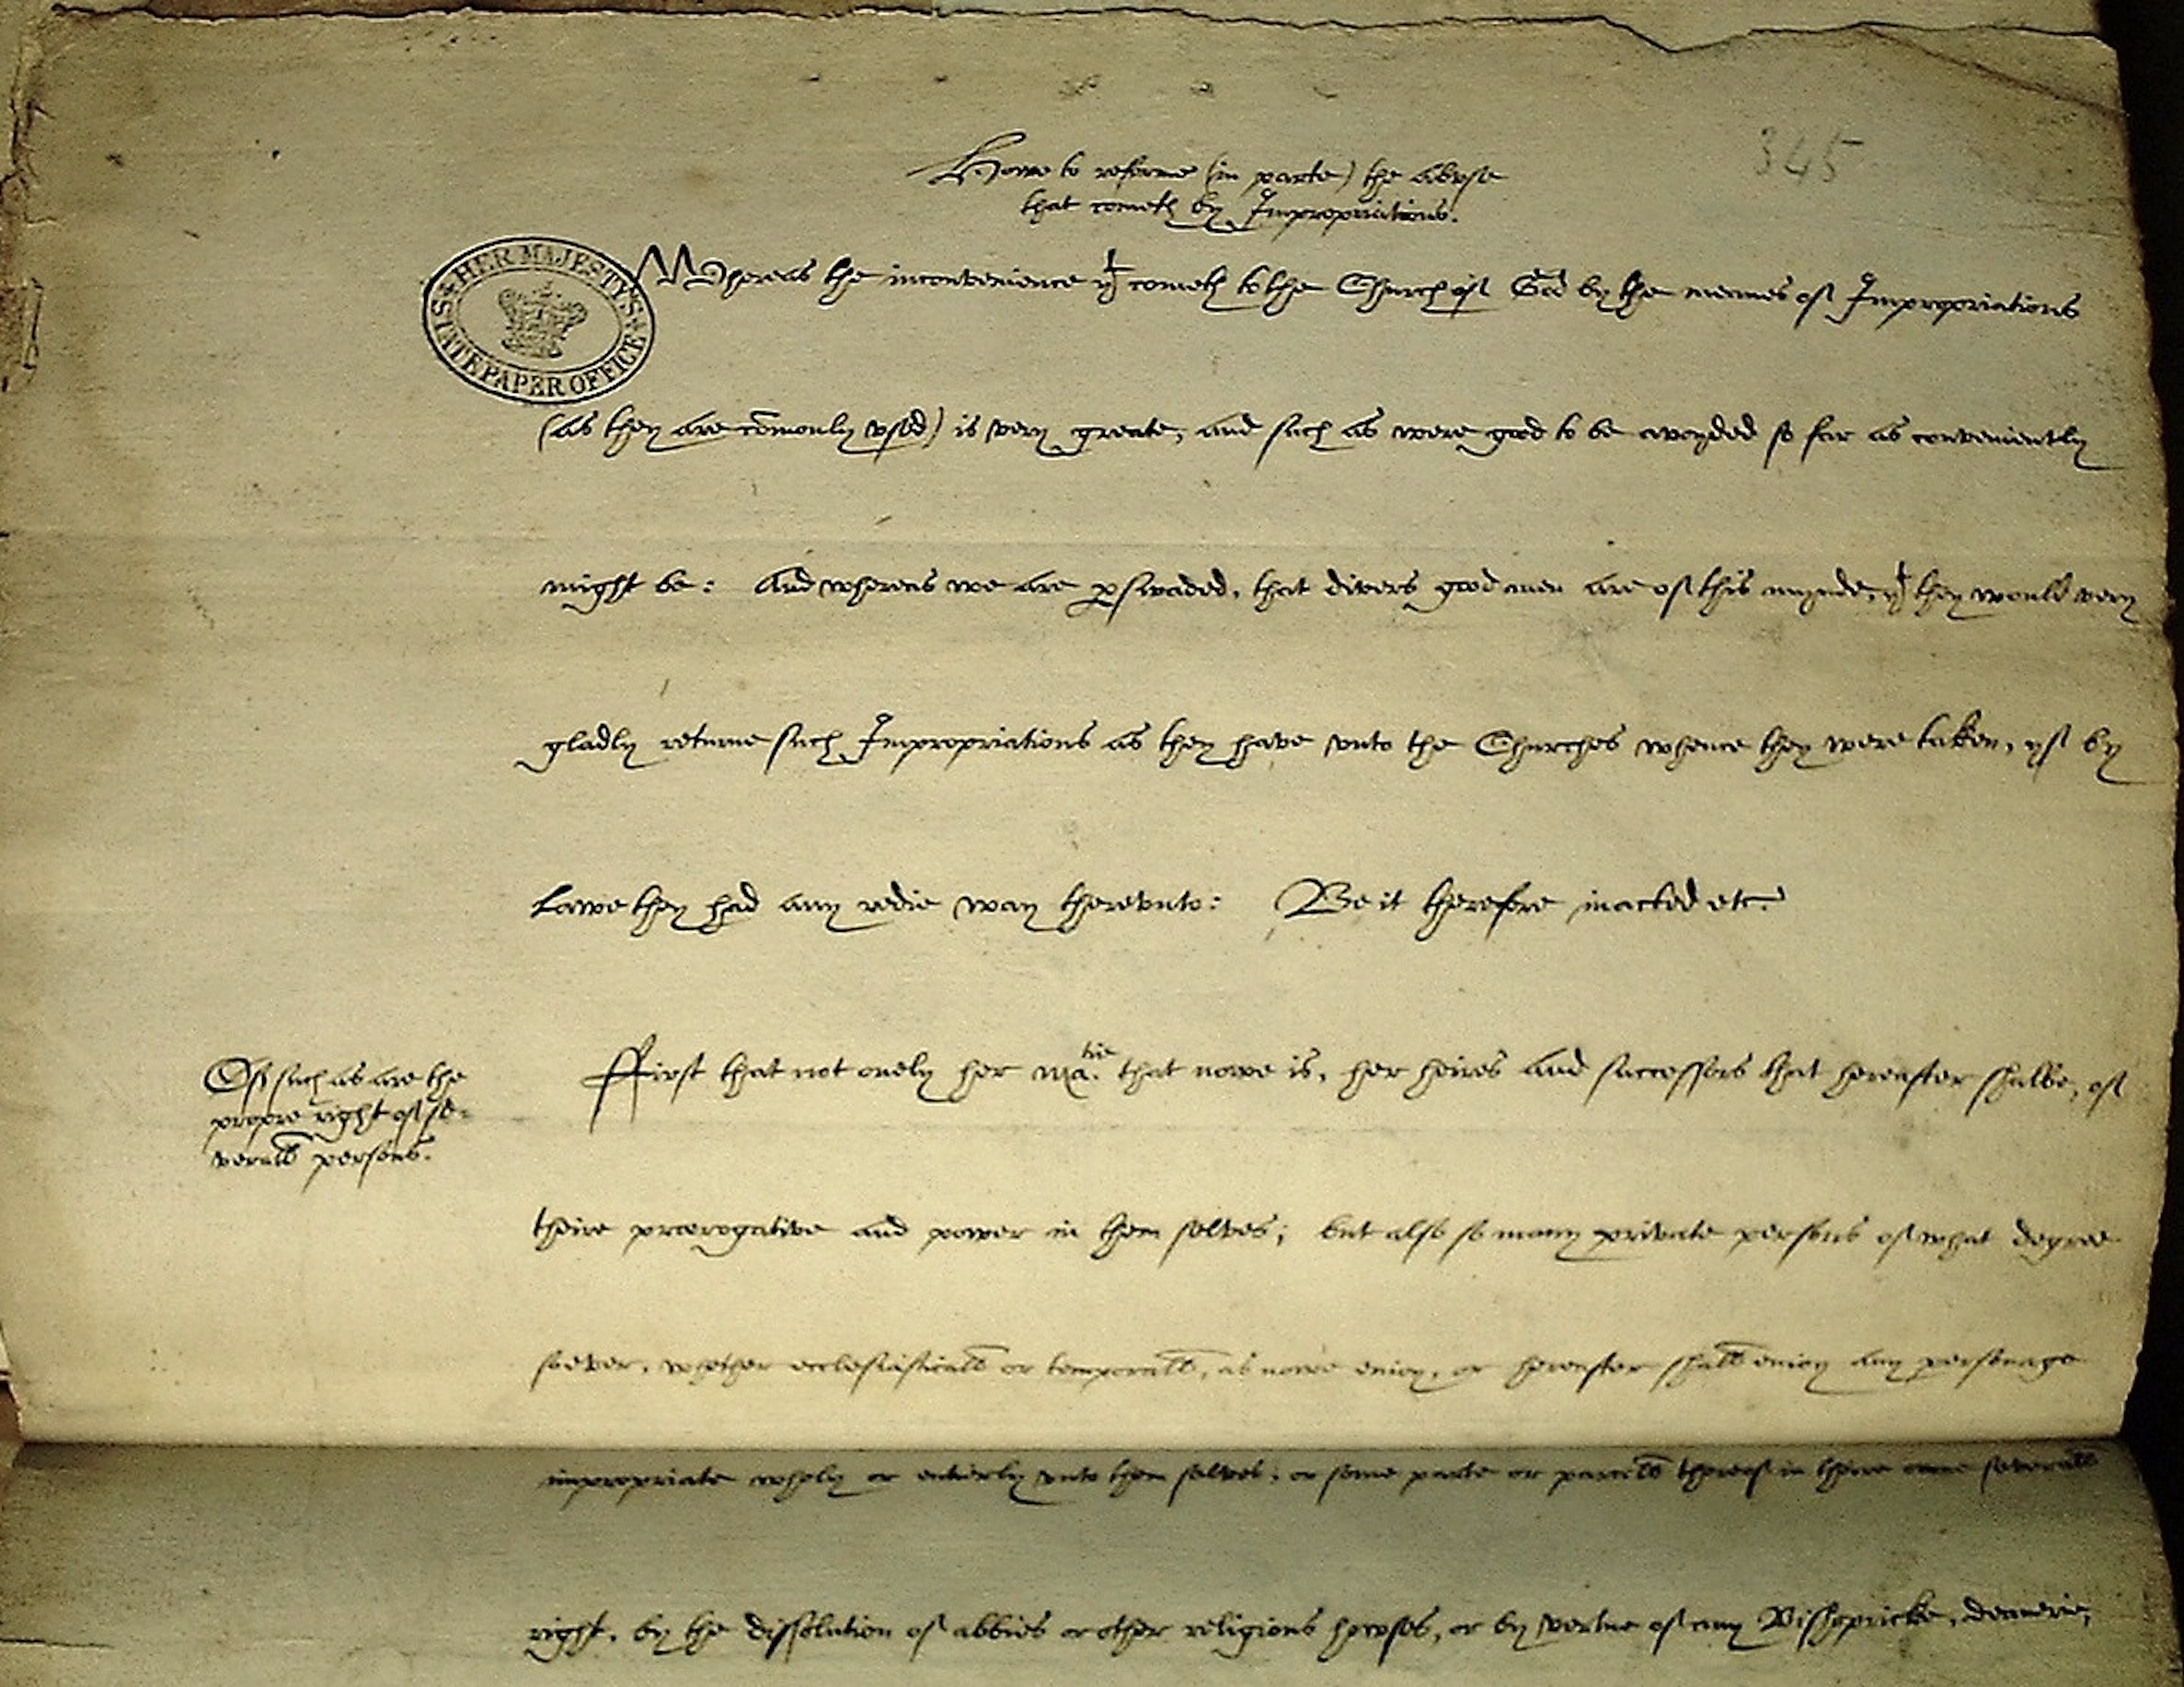 345
Howe to reforme (in parte) the abvse
that cometh by Impropriations.
HER MAJESTY'S STATE PAPER OFFICE
Whereas the inconvenience yt cometh to the Church of God by the meanes of Impropriations
(as they are com̄only vsed) is very greate, and such as were good to be avoyded so far as conveniently
might be: And whereas we are pswaded, that divers good men are of this mynde, yt they would very
gladly returne such Impropriations as they have vnto the Churches whence they were taken, yf by
Lawe they had any redie way therevnto: Be it therefore inacted etc.
Of such as are the
propre right of se-
verall persons.
First that not onely her Matie. that nowe is, her heires and successors that hereafter shalbe, of
theire prærogative and power in them selves; but also so many private persons of what degree
soever, whether ecclesiasticall or temporall, as nowe enioy, or hereafter shall enioy any personage
impropriate wholy or entierly vnto them selves; or some parte or parcell thereof in theire owne severall
right, by the dissolution of abbies or other religious howses, or by vertue of any Bishopricke, deanerie,